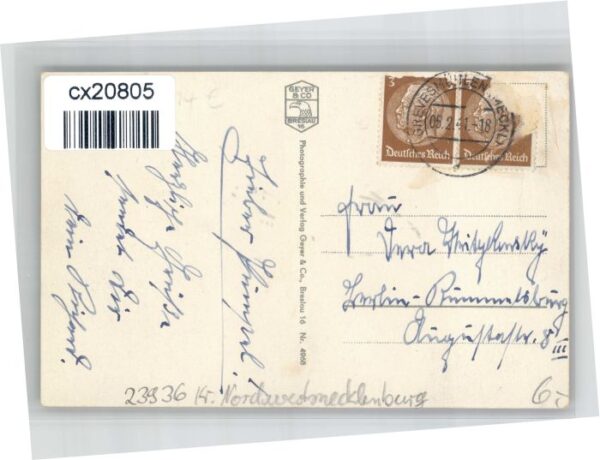 cx20805
GEYER
& CO
BRESLAU
16
Photographie und Verlag Geyer & Co., Breslau 16 Nr. 4968
3
Deutsches Reich
Deutsches Reich
GREVESMÜHLEN (MECKL)
08.2.41.-18
Lieber Hümpel!
Herzliche Grüße
sendet Dir
Dein
Frau
Vera
Berlin-Rummelsburg
Augustastr. 8 III
23936 Kr. Nordwestmecklenburg
6,-